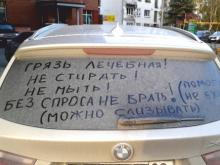 ГРЯЗЬ ЛЕЧЕБНАЯ!
НЕ СТИРАТЬ!
НЕ МЫТЬ!
БЕЗ СПРОСА НЕ БРАТЬ!
(МОЖНО СЛИЗЫВАТЬ)